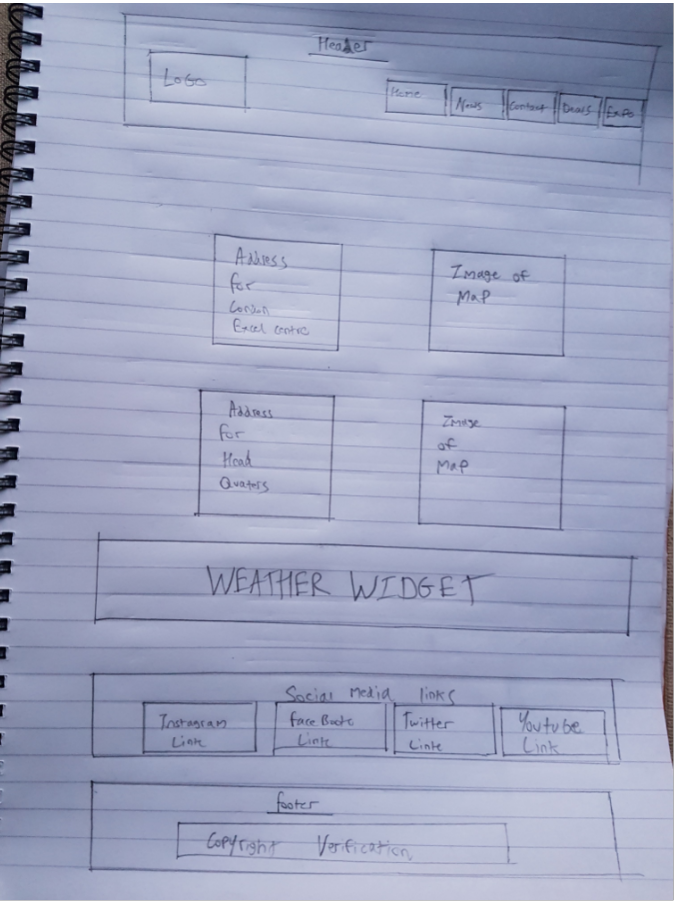 Header
Logo
Home
News
Contact
Deals
Expo
Address
for
London
Excel centre
Image of
Map
Address
for
Head
Quators
Image
of
Map
WEATHER WIDGET
Social Media links
Instagram
Link
FaceBook
Link
Twitter
Link
Youtube
Link
footer
Copyright Verification